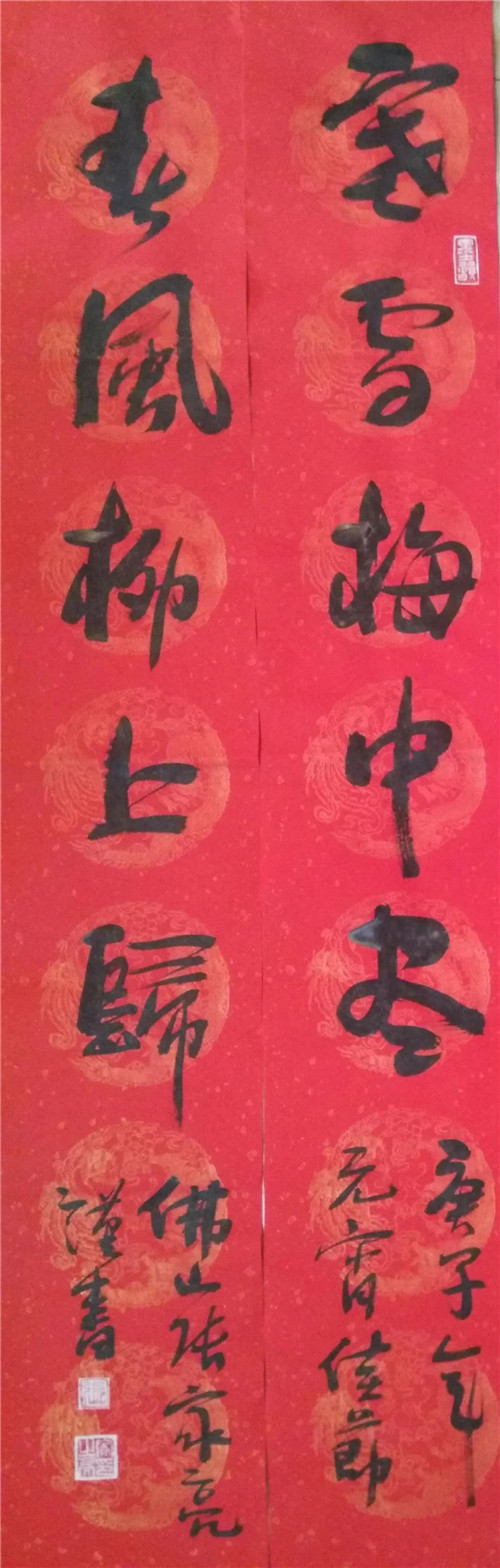 寒雪梅中尽
庚子年
元宵佳節
春風柳上歸
佛山张家亮
謹書